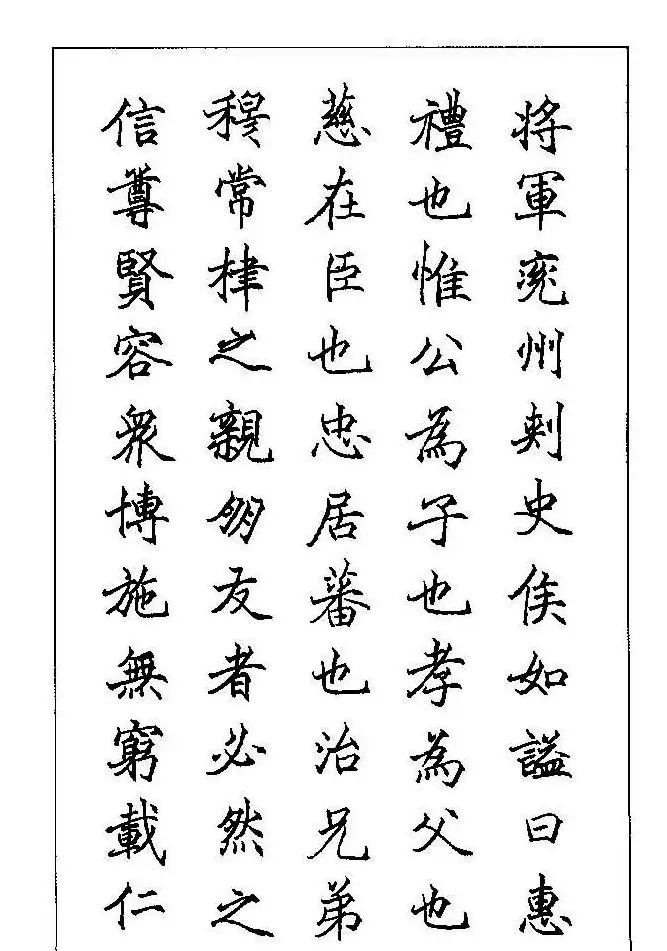 將軍兖州刺史侯如謚曰惠
禮也惟公為子也孝為父也
慈在臣也忠居蕃也治兄弟
穆常棣之親朋友著必然之
信尊賢容衆博施無窮載仁